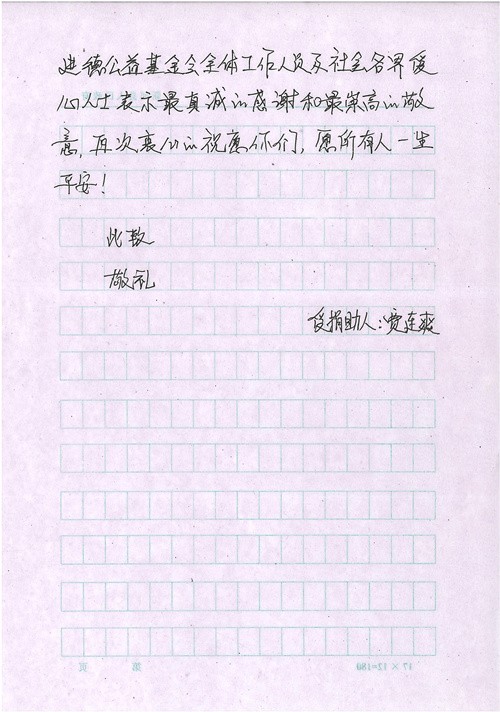 进德公益基金会全体工作人员及社会各界爱
心人士表示最真诚的感谢和最崇高的敬
意，再次衷心的祝愿你们，愿所有人一生
平安！
此致
敬礼
受捐助人：贾连爽
17 × 12=180 第 页